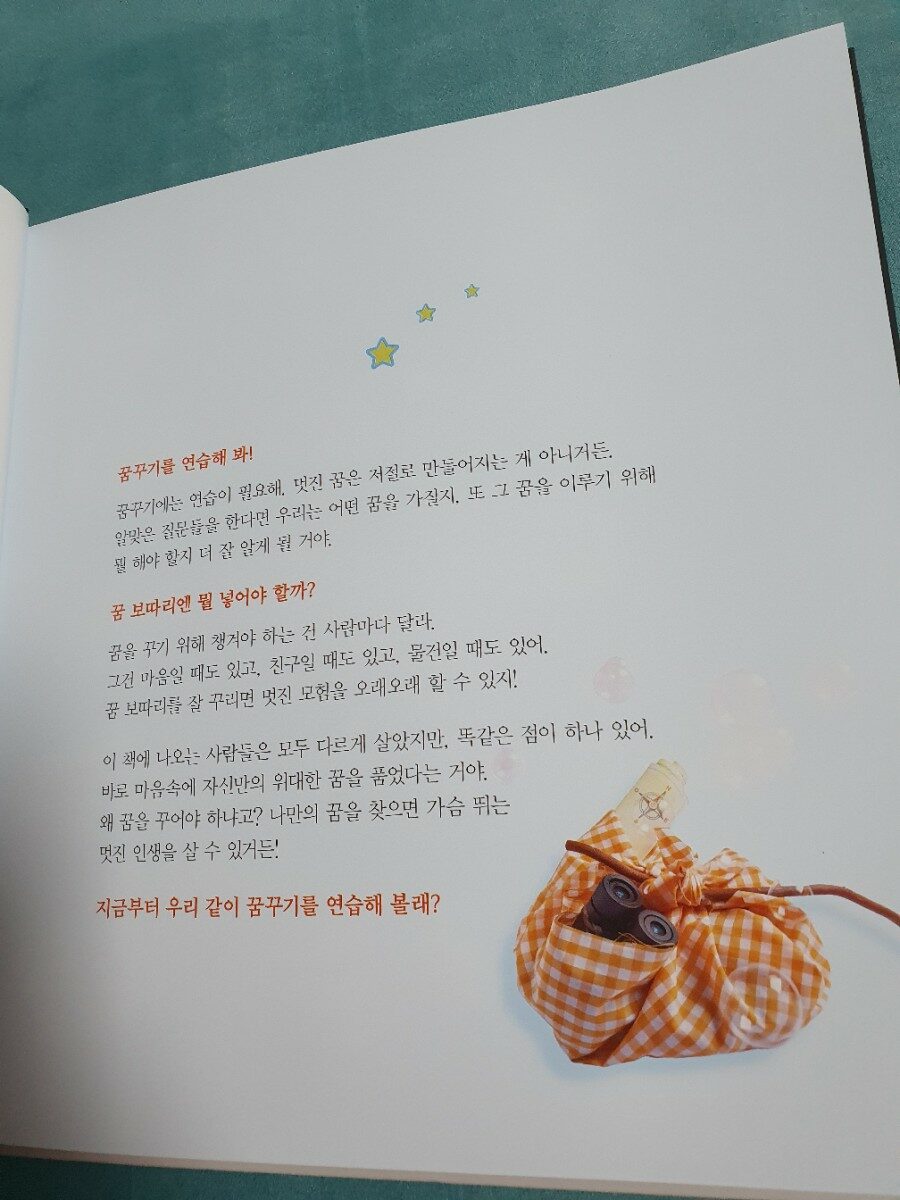 꿈꾸기를 연습해 봐!
꿈꾸기에는 연습이 필요해. 멋진 꿈은 저절로 만들어지는 게 아니거든.
알맞은 질문들을 한다면 우리는 어떤 꿈을 가질지, 또 그 꿈을 이루기 위해
뭘 해야 할지 더 잘 알게 될 거야.
꿈 보따리엔 뭘 넣어야 할까?
꿈을 꾸기 위해 챙겨야 하는 건 사람마다 달라.
그건 마음일 때도 있고, 친구일 때도 있고, 물건일 때도 있어.
꿈 보따리를 잘 꾸리면 멋진 모험을 오래오래 할 수 있지!
이 책에 나오는 사람들은 모두 다르게 살았지만, 똑같은 점이 하나 있어.
바로 마음속에 자신만의 위대한 꿈을 품었다는 거야.
왜 꿈을 꾸어야 하냐고? 나만의 꿈을 찾으면 가슴 뛰는
멋진 인생을 살 수 있거든!
지금부터 우리 같이 꿈꾸기를 연습해 볼래?